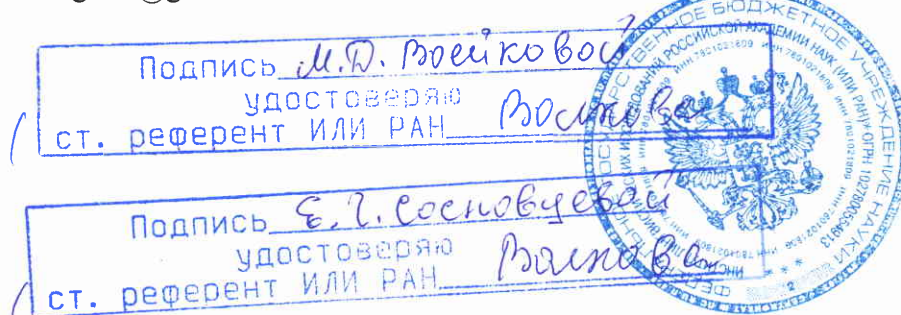 Подпись М.Д. Воейковой
удостоверяю
ст. референт ИЛИ РАН Волкова
Подпись Е.Г. Сосновцевой
удостоверяю
ст. референт ИЛИ РАН Волкова
БЮДЖЕТНОЕ УЧРЕЖДЕНИЕ НАУКИ
РОССИЙСКОЙ АКАДЕМИИ НАУК (ИЛИ РАН) ОГРН 1027800554913